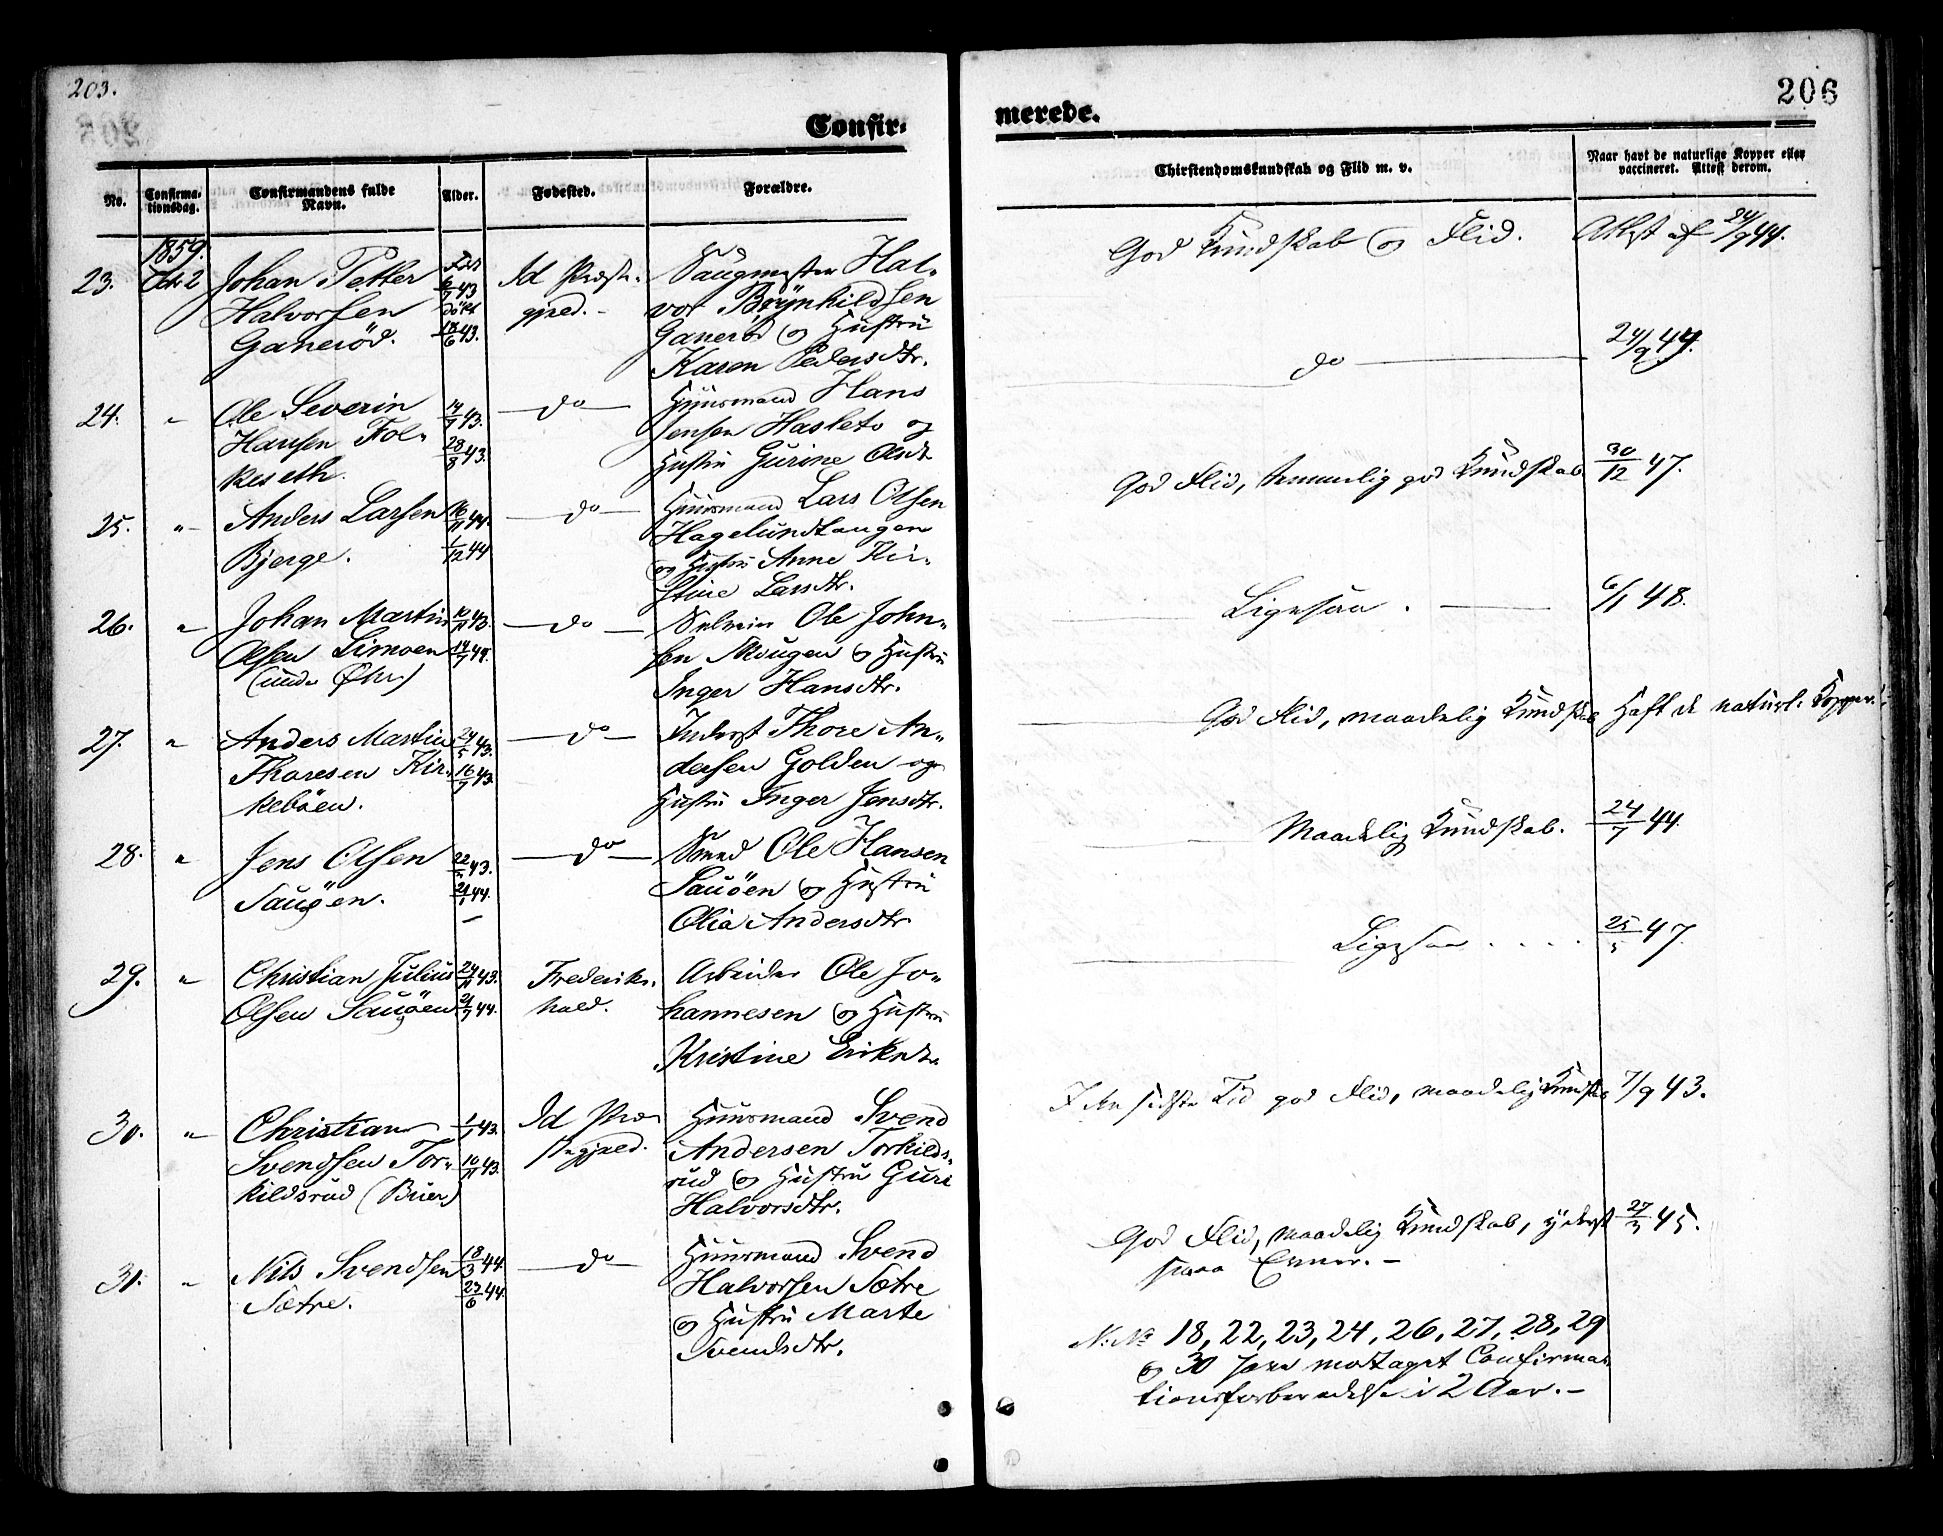 203.
206
Confir-
merede.
No.
Confirma-
tionsdag.
Confirmandens fulde
Navn.
Alder.
Fødested.
Forældre.
Chirstendomskundskab og Flid m. v.
Naar havt de naturlige Kopper eller
vaccineret. Attest derom.
1859.
23. Octr 2 Johan Petter
Halvorsen
Ganerød.
Fdt
6/7 43
döbt
43.
Id Præste-
gjæld.
Saugmester Hal-
vor Brynhildsen
Ganerød og Hustru
Karen Pedersdtr.
God Kundskab og Flid.
Attest af 24/9 44.
24. " Ole Severin
Hansen Fol-
keseth.
14/7 43.
28/8 43.
do
Huusmand Hans
Jensen Hasleto og
Hustru Gurine Olsdr
do
24/9 44.
25. " Anders Larsen
Bjerge.
16/11 44.
1/12 44
do
Huusmand Lars Olsen
Hagelundtangen
og Hustru Anne Kir-
stine Larsdtr.
God Flid, temmelig god Kundskab
30/12 47.
26. " Johan Martin
Olsen Limoen
(unde Øhr)
10/11 43.
14/7 44.
do
Selveier Ole John-
sen Skougen og Hustru
Inger Hansdtr.
Ligesaa.
6/1 48.
27. " Anders Martin
Thoresen Kir-
kebøen.
24/5 43.
16/7 43.
do
Inderst Thore An-
dersen Golden og
Hustru Inger Jensdtr.
God Flid, maadelig Kundskab
Haft de naturl. Kopper.
28. " Jens Olsen
Saugøen.
43.
44.
do
Smed Ole Hansen
Sauøen og Hustru
Olia Andersdtr
Maadelig Kundskab.
24/7 44.
29. " Christian Julius
Olsen Saugøen
24/11 43.
21/7 44.
Frederiks-
hald.
Arbeider Ole Jo-
hannesen og Hustru
Kristine Eriksd.
Ligesaa . . . .
25/5 47.
30. " Christian
Svendsen Tor-
kildsrud (Buer)
1/7 43.
10/11 43.
Id Præ-
stegjæld.
Huusmand Svend
Andersen Torkilds-
rud og Hustru Guri
Halvorsdtr.
I den sidste Tid god Flid, maadelig Kundskab
7/9 43.
31. " Nils Svendsen
Sætre.
18/3 44.
23/6 44.
do
Huusmand Svend
Halvorsen Sætre
og Hustru Marte
Svendsdtr.
God Flid, maadelig Kundskab, yderst
smaa Evner.
45.
N: No 18, 22, 23, 24, 26, 27, 28, 29
og 30 have modtaget Confirma-
tionsforberedelse i 2 Aar.